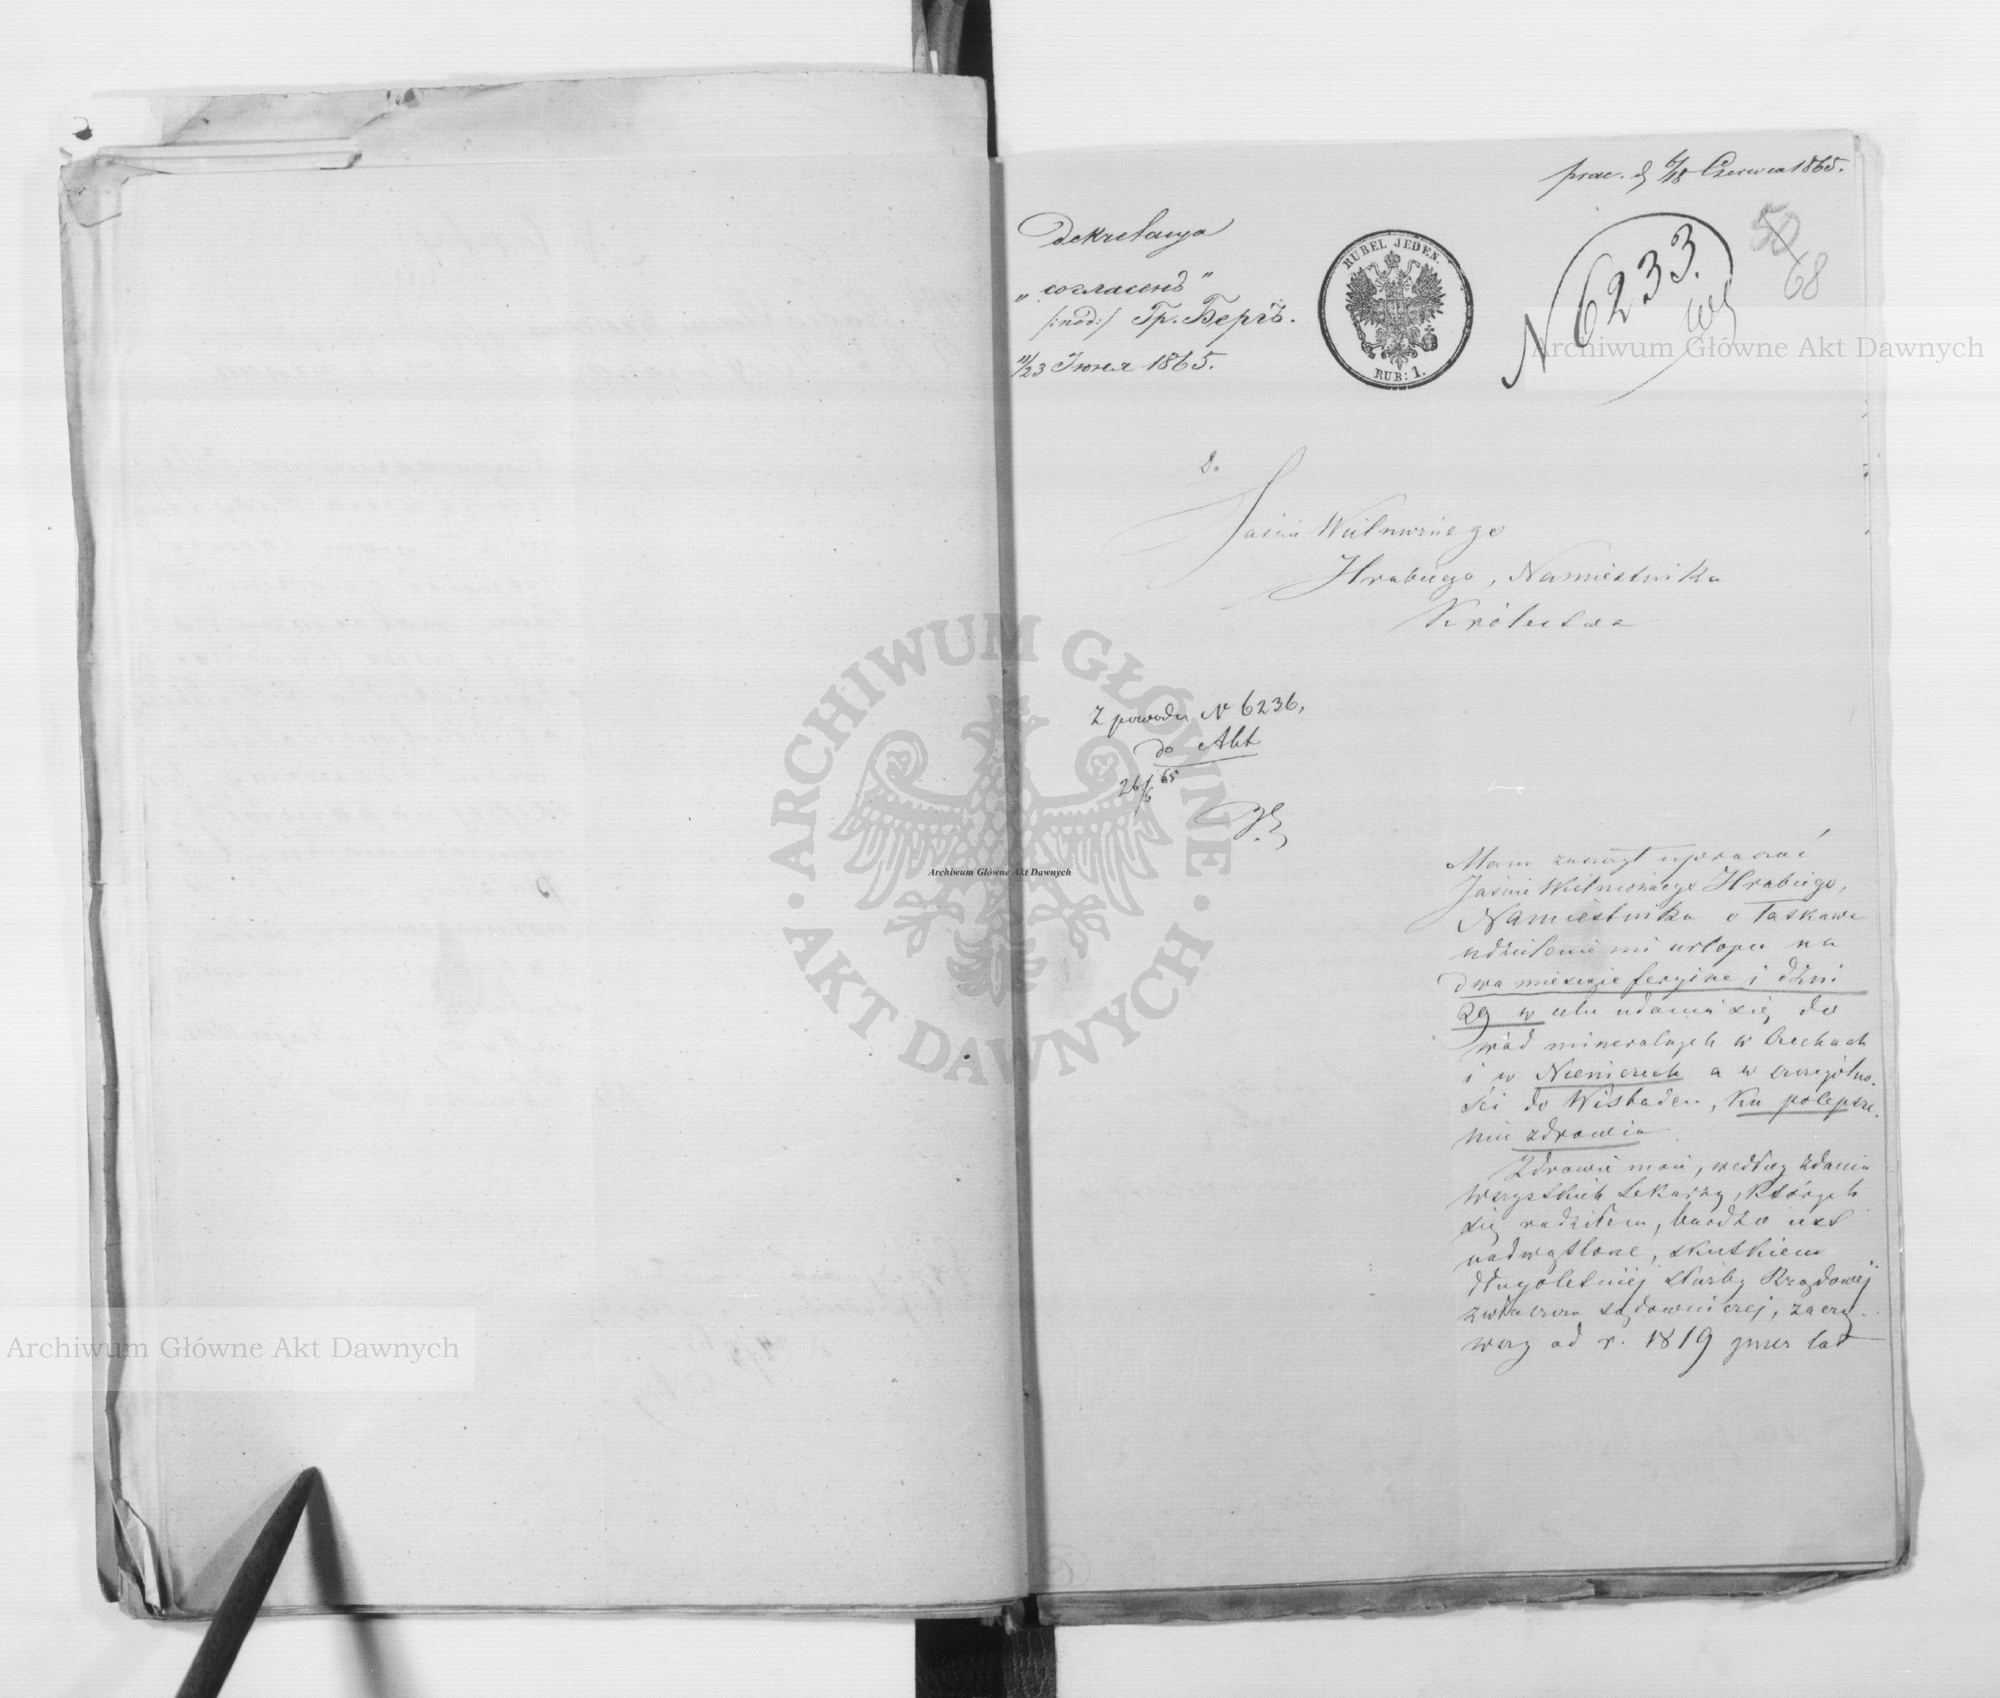 prae. d 6/18 Czerwca 1865.
50
68
N 6233.
Dekretacya
„согласенъ"
/:pod:/ Гр. Бергъ.
11/23 Іюня 1865.
RUBEL JEDEN.
RUB: 1.
Do
Jaśnie Wielmożnego
Hrabiego, Namiestnika
Królestwa
Z powodu N 6236,
do Akt
26/6 65
Mam zaszczyt upraszać
Jaśnie Wielmożnego Hrabiego,
Namiestnika o łaskawe
udzielenie mi urlopu na
dwa miesiące feryjne i dni
29 w celu udania się do
wód mineralnych w Czechach
i w Niemczech a w szczególno-
ści do Wisbaden, ku polepsze-
niu zdrowia.
Zdrowie moie, według zdania
wszystkich Lekarzy, których
się radziłem, bardzo iest
nadwątlone, skutkiem
długoletniéj służby Rządowéj
zwłaszcza sądowniczej, zacząw-
szy od r. 1819 przez lat
Archiwum Główne Akt Dawnych
Archiwum Główne Akt Dawnych
Archiwum Główne Akt Dawnych
ARCHIWUM GŁÓWNE
AKT DAWNYCH